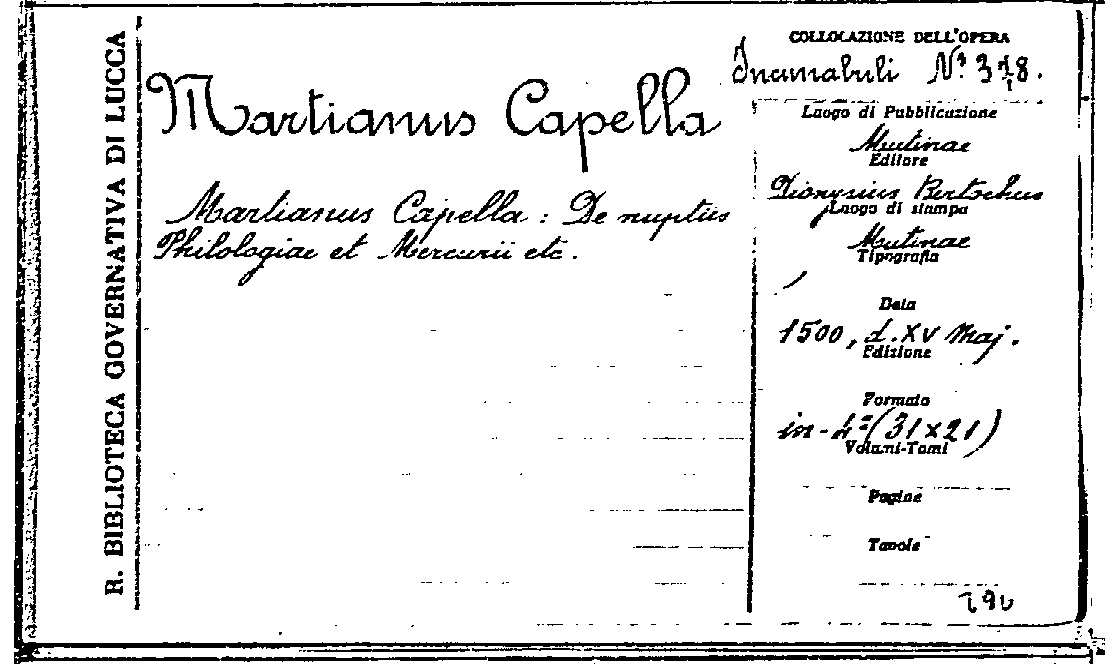 R. BIBLIOTECA GOVERNATIVA DI LUCCA
Martianus Capella
Martianus Capella : De nuptiis
Philologiae et Mercurii etc.
COLLOCAZIONE DELL'OPERA
Incunabuli Nº 318.
Luogo di Pubblicazione
Mutinae
Editore
Dionysius Bertochus
Luogo di stampa
Mutinae
Tipografia
Data
1500, d. XV Maj.
Edizione
Formato
in-4º (31x21)
Volumi-Tomi
Pagine
Tavole